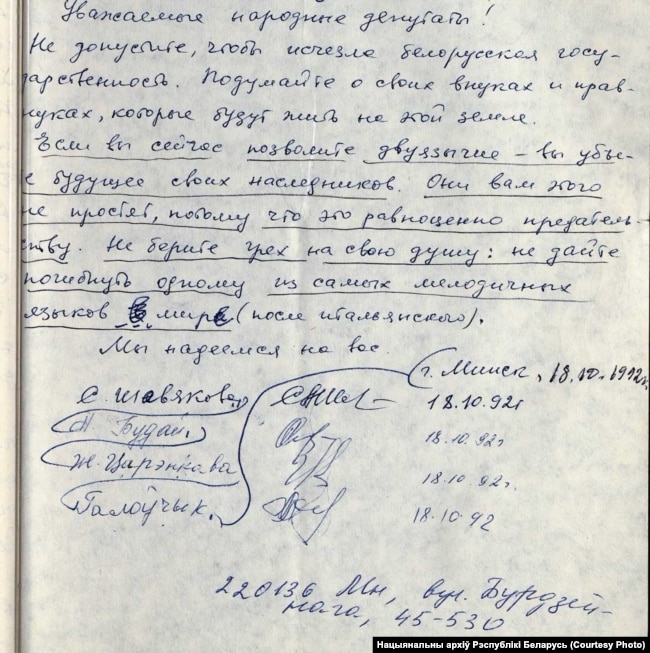 Уважаемые народные депутаты!
Не допустите, чтобы исчезла белорусская госу-
дарственность. Подумайте о своих внуках и прав-
нуках, которые будут жить на этой земле.
Если вы сейчас позволите двуязычие – вы убье-
е будущее своих наследников. Они вам этого
не простят, потому что это равноценно предатель-
ству. Не берите грех на свою душу: не дайте
погибнуть одному из самых мелодичных
языков мира (после итальянского).
Мы надеемся на вас.
г. Минск, 18.10.1992г.
С. Шавякова, 18.10.92г
Н. Будай, 18.10.92г
Ж. Царэнкава 18.10.92г.
Галоўчык. 18.10.92
220136 Мн, вул. Бурдзей-
нага, 45-530
Нацыянальны архіў Рэспублікі Беларусь (Courtesy Photo)